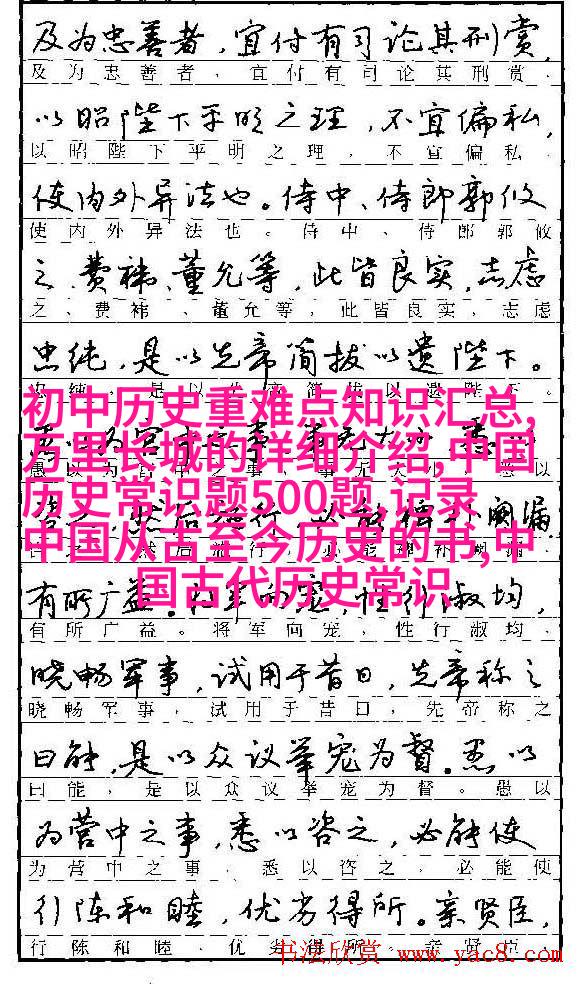 及为忠善者，宜付有司论其刑赏，
及为忠善者，宜付有司论其刑赏，
以昭陛下平明之理，不宜偏私，
以昭陛下平明之理，不宜偏私，
使内外异法也。侍中、侍郎郭攸
使内外异法也。侍中、侍郎郭攸
之、费祎、董允等，此皆良实，志虑
之、费祎、董允等，此皆良实，志虑
忠纯，是以先帝简拔以遗陛下。
初中历史重难点知识汇总,
万里长城的详细介绍,中国
历史常识题500题,记录
中国从古至今历史的书,中
国古代历史常识
阙漏
有所广益。
性行淑均，
有所广益。将军向宠，性行淑均，
晓畅军事，试用于昔日，先帝称之
晓畅军事，试用于昔日，先帝称之
曰能，是以众议举宠为督。愚以
曰能，是以众议举宠为督。愚以
为营中之事，悉以咨之，必能使
为营中之事，悉以咨之，必能使
行陈和睦，优劣得所。亲贤臣，
行陈和睦，优劣得所。亲贤臣，
书法欣赏 www.yac8.com